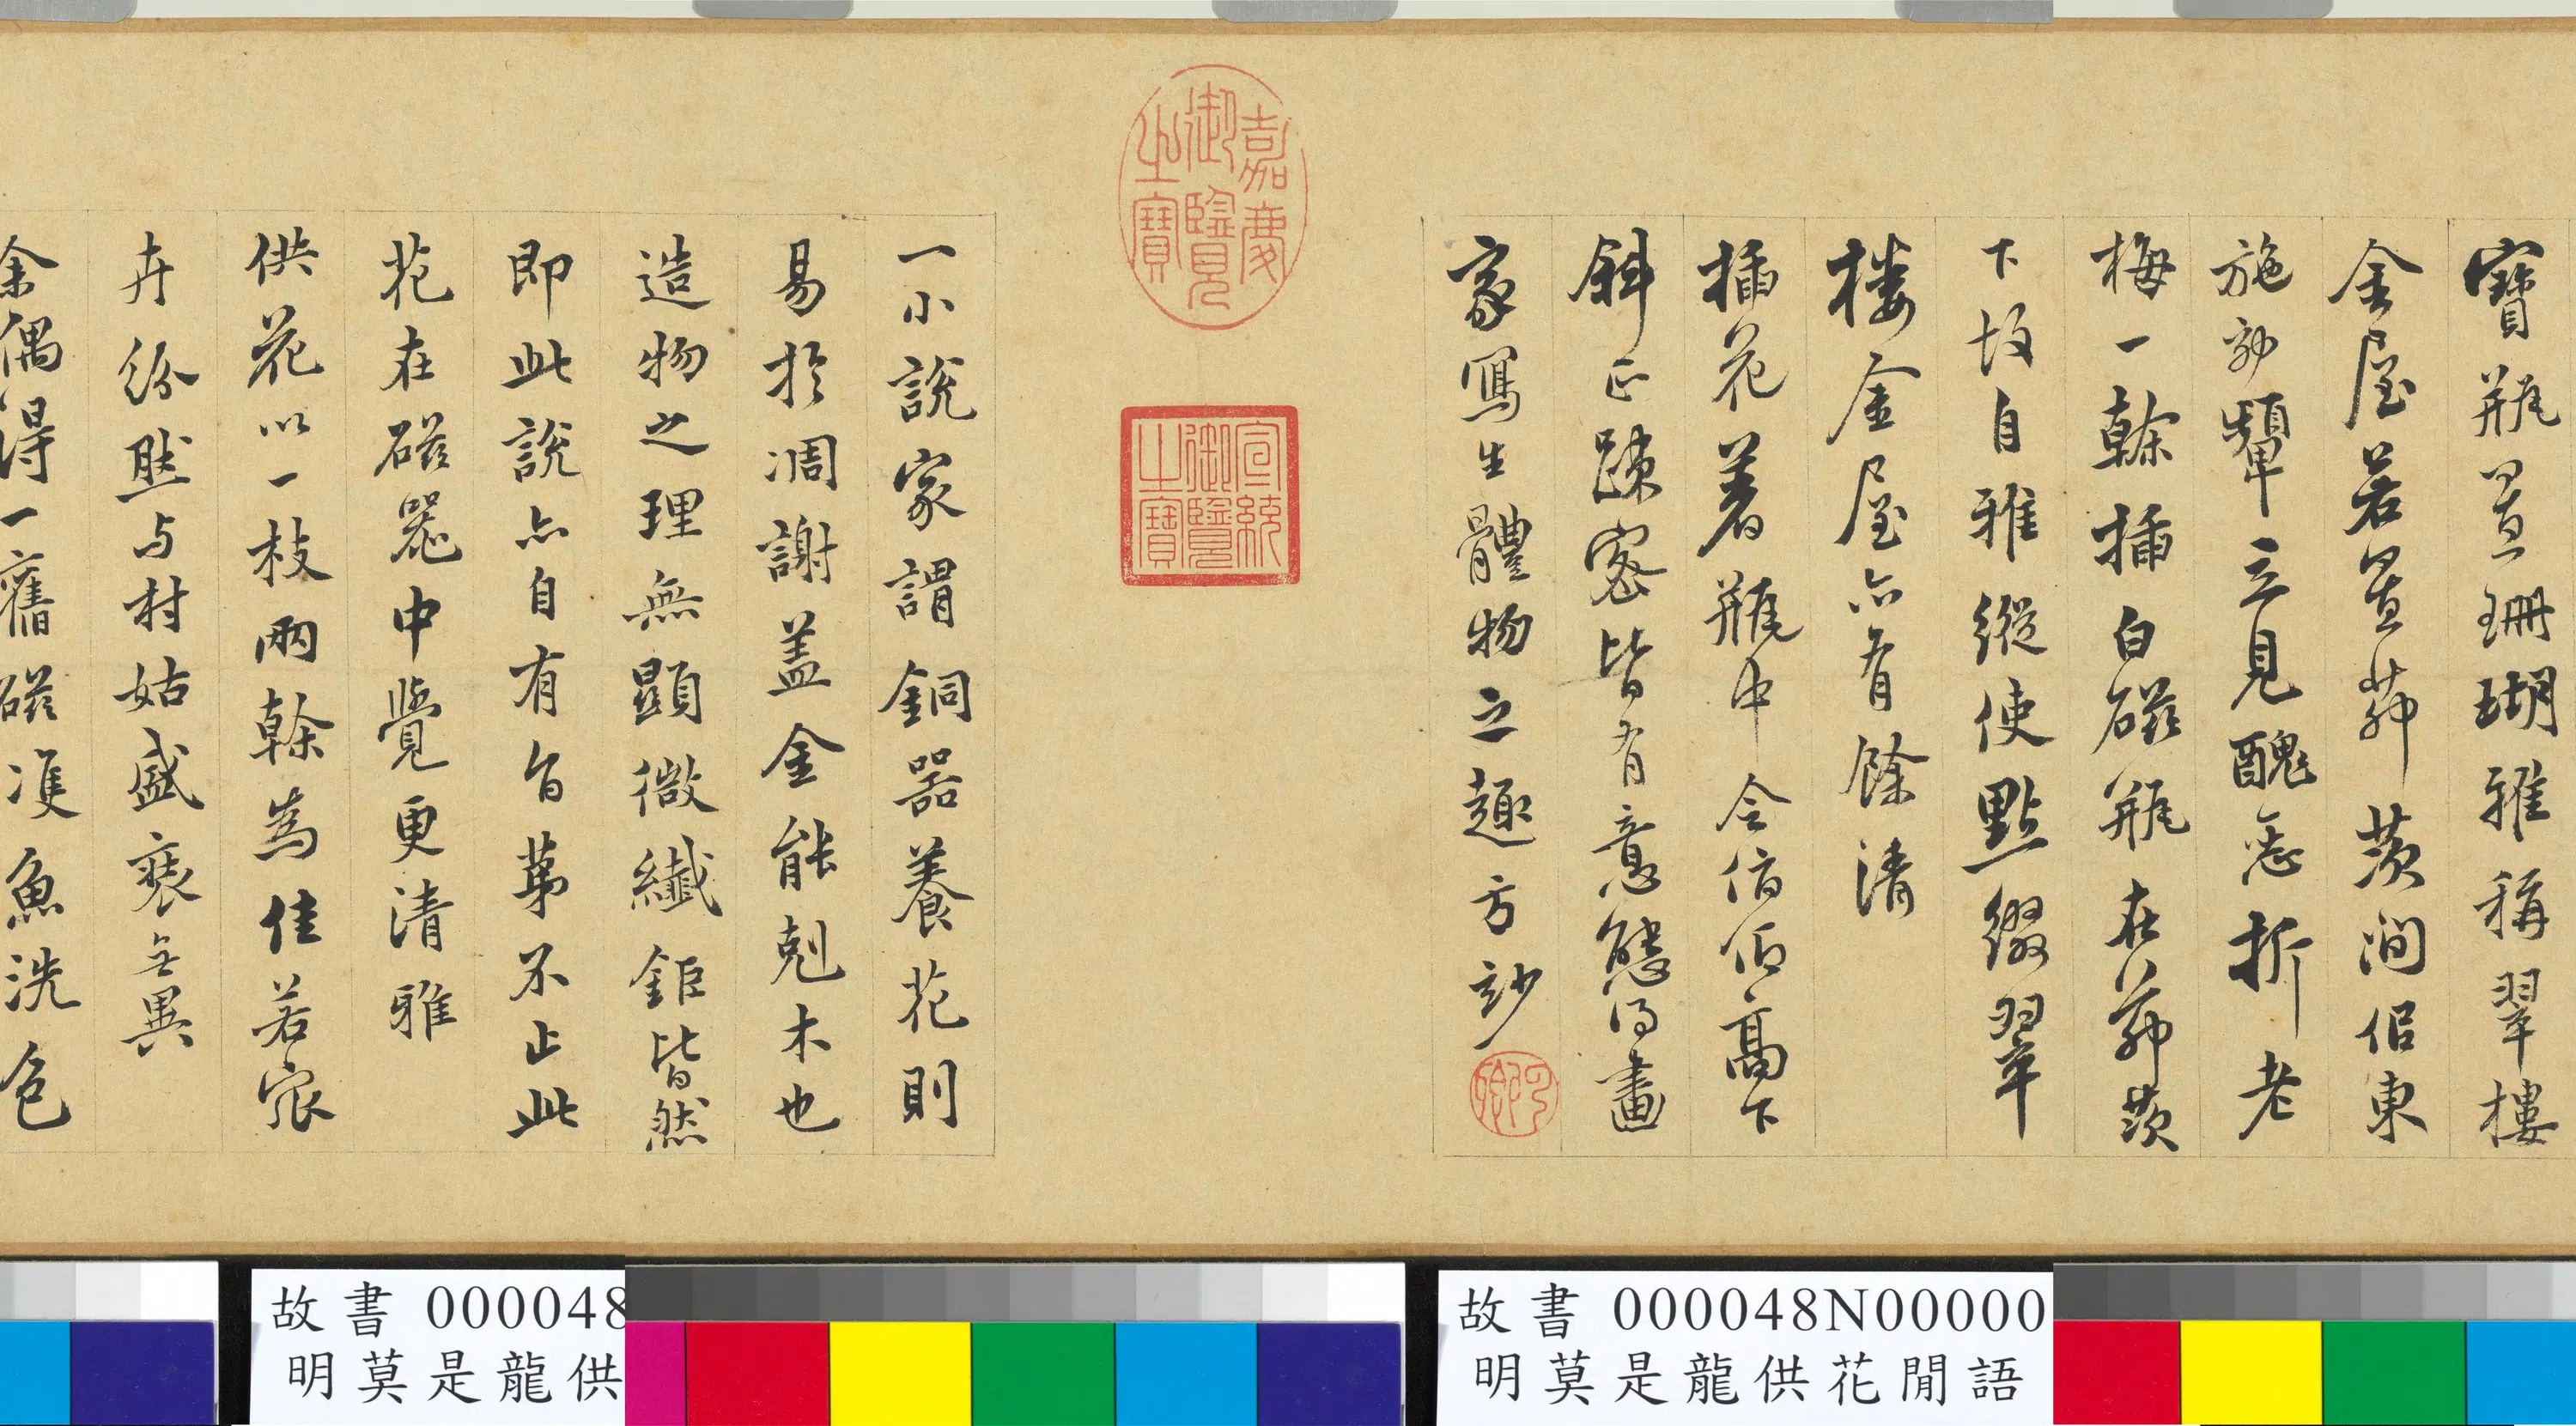 寶瓶置珊瑚雅稱翠樓
金屋若置茆茨澗侶東
施効顰立見醜惡折老
梅一榦插白磁瓶在茆茨
下故自雅縱使點綴翠
樓金屋亦有餘清
插花着瓶中令俯仰高下
斜正踈密皆有意態得畫
家寫生體物之趣方妙
嘉慶
御覽
之寶
宣統
御覽
之寶
一小說家謂銅器養花則
易於凋謝蓋金能剋木也
造物之理無顯微纖鉅皆然
即此說亦自有旨苐不止此
花在磁器中覺更清雅
供花以一枝兩榦為佳若眾
卉紛然与村姑盛裹無異
余偶得一舊磁雙魚洗色
故書 000048
明莫是龍供
故書 000048N00000
明莫是龍供花閒語